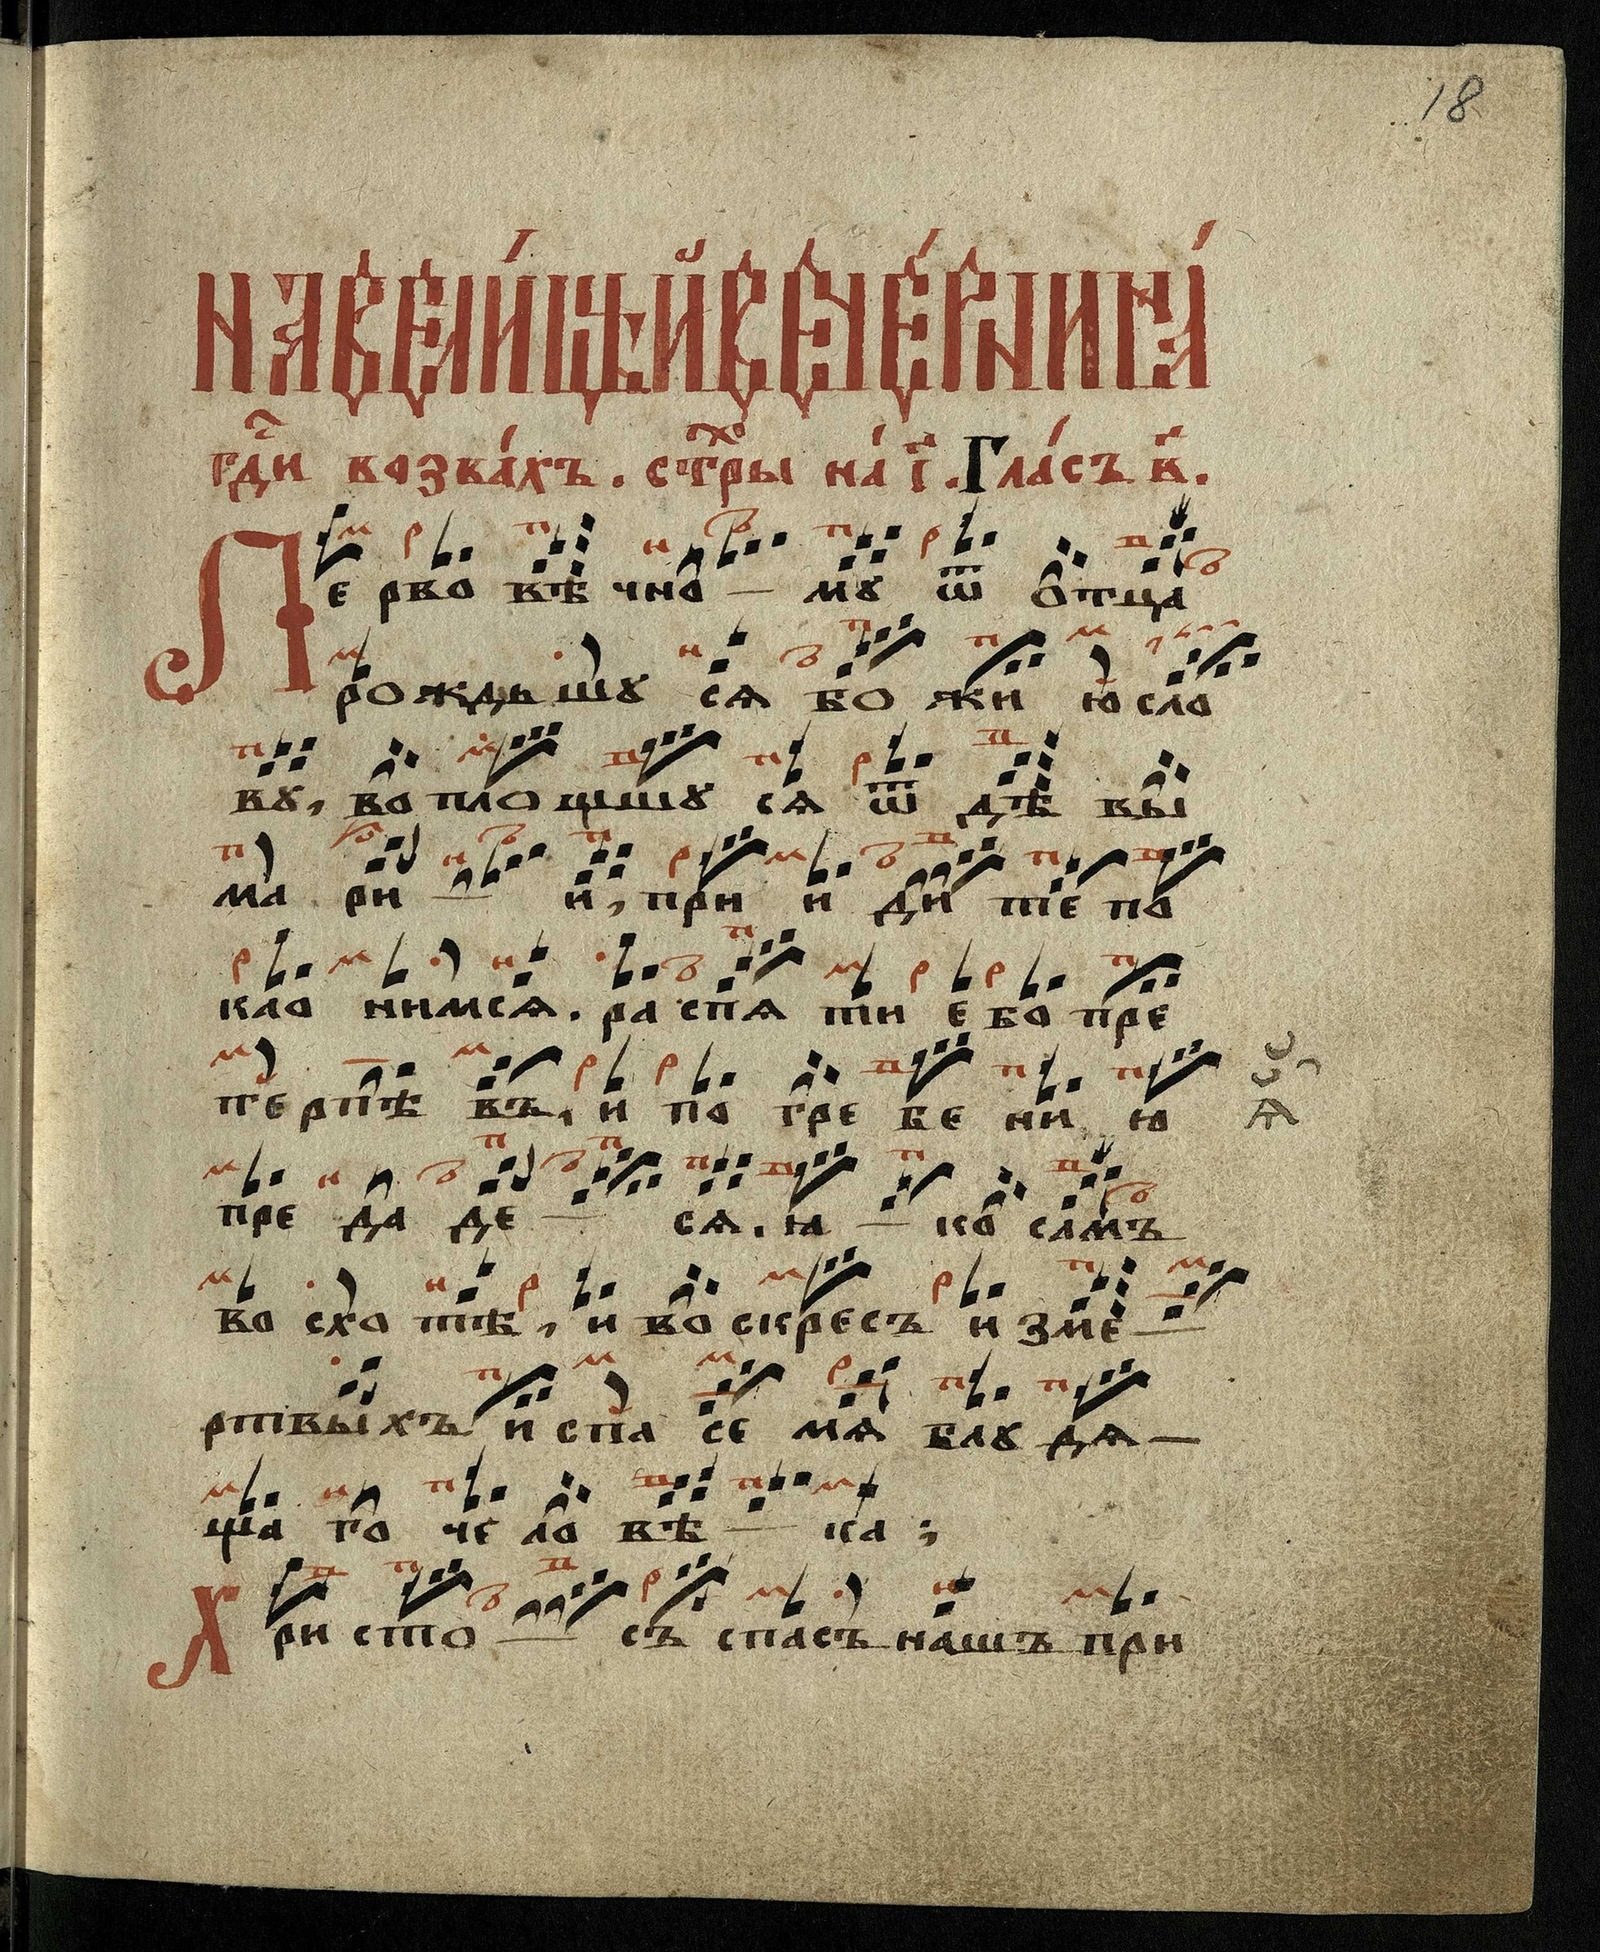 18
На вели́цѣй вече́рни на́
гд҇и возва́хъ . стх҃ры на́ і҃ . Гла́съ в҃ .
Пе рво вѣ чно — мꙋ ѿ ѻтца
рождьшꙋ сѧ бо жи ю сло
вꙋ, во пло щшꙋ сѧ ѿ дѣ вы
ма ри — и, при и ди те по
кло нимсѧ . ра спѧ ти е бо пре
терпѣ въ, и по гре бе ни ю
ѧ
пре да де — сѧ . ꙗ — ко самъ
во схо тѣ, и во скресъ и зме —
ртвыхъ и спа се мѧ блꙋ дѧ —
ща го че ло вѣ — ка ;
Хри сто — съ спасъ нашъ при